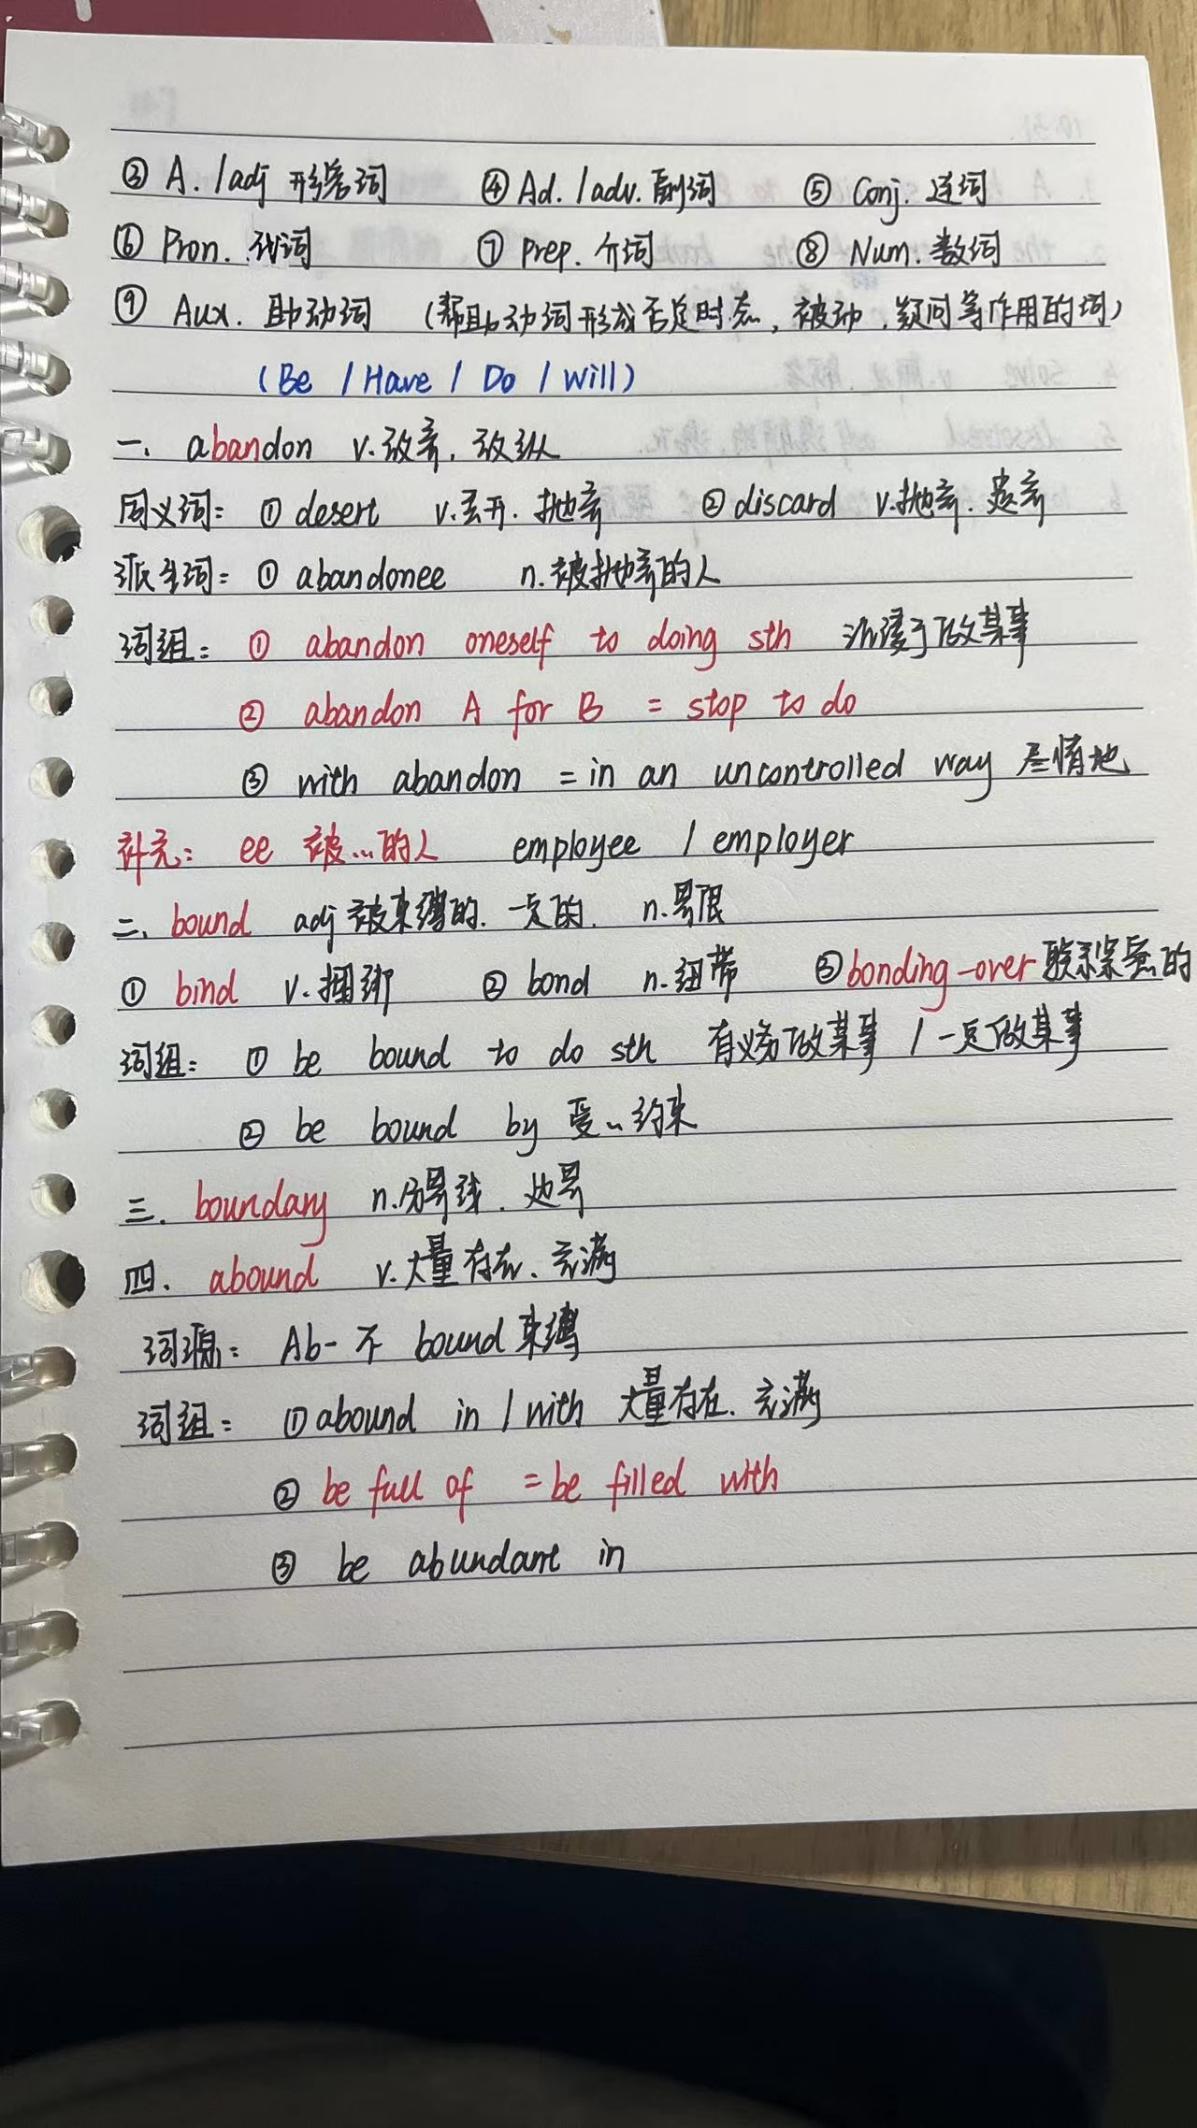 ③ A. / adj 形容词 ④ Ad. / adv. 副词 ⑤ Conj. 连词
⑥ Pron. 代词 ⑦ Prep. 介词 ⑧ Num. 数词
⑨ Aux. 助动词 (帮助动词形成否定时态, 被动, 疑问等作用的词)
(Be / Have / Do / Will)
一、abandon v.放弃, 放纵
同义词: ① desert v.丢开. 抛弃 ② discard v.抛弃. 遗弃
派生词: ① abandonee n.被抛弃的人
词组: ① abandon oneself to doing sth 沉浸于做某事
② abandon A for B = stop to do
③ with abandon = in an uncontrolled way 尽情地
补充: ee 被...的人 employee / employer
二、bound adj 被束缚的. 一定的. n.界限
① bind v.捆绑 ② bond n.纽带 ③ bonding-over 联系紧密的
词组: ① be bound to do sth 有义务做某事 / 一定做某事
② be bound by 受...约束
三. boundary n.分界线. 边界
四. abound v.大量存在. 充满
词源: Ab- 不 bound 束缚
词组: ① abound in / with 大量存在. 充满
② be full of = be filled with
③ be abundant in